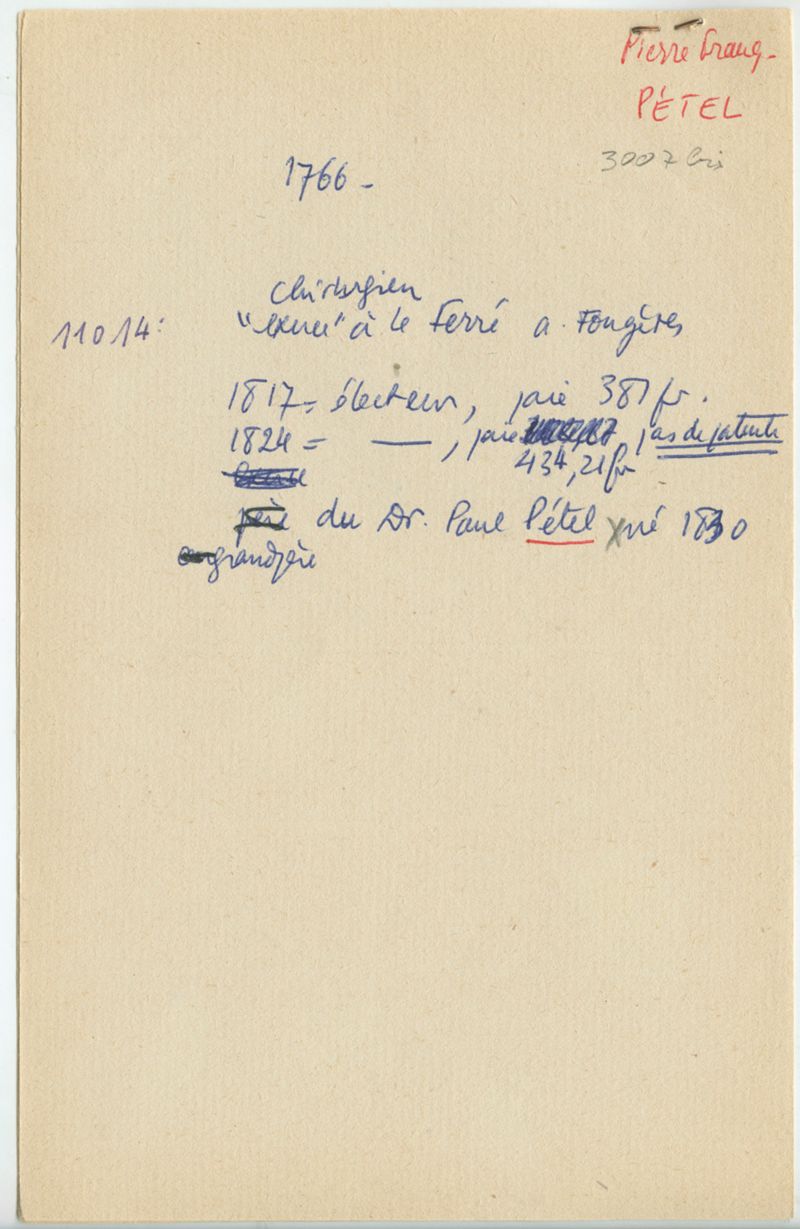 Pierre Franç-
PÉTEL
3007 bis
1766 -
Chirurgien
11014: "exerce" à le Ferré a. Fougères
1817 = électeur, paie 387 fr.
1824 = — , paie pas de patente
434,21 fr
père du Dr. Paul Pétel né 1830
grandpère